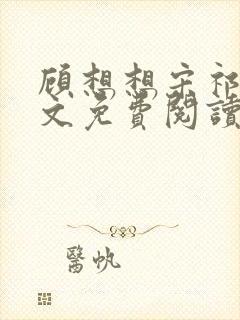 顾想想宋祁
文免费阅读
醫帆